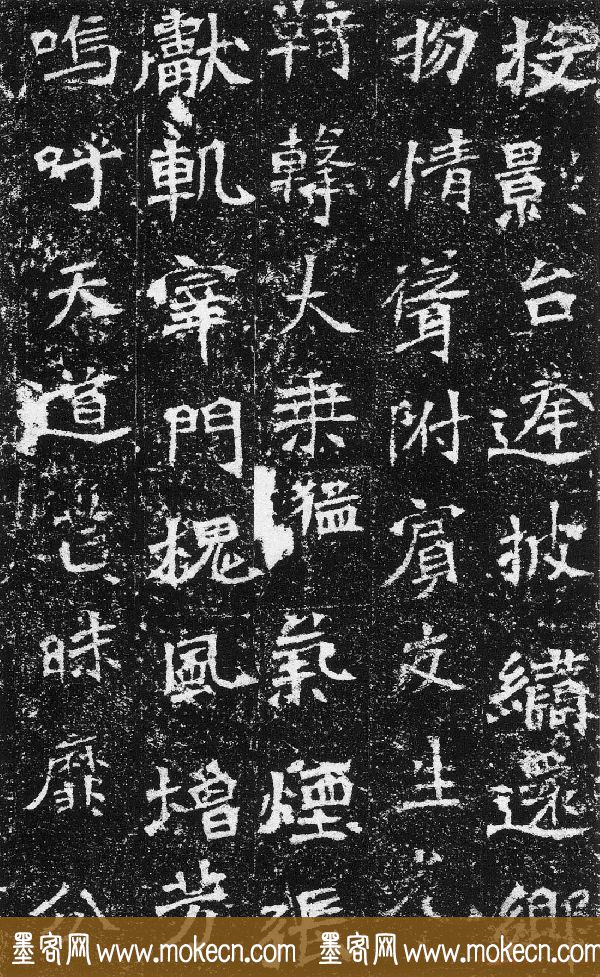 投影台違披繡還鄉
物情聳附賓文生
韜鋒大乘猛氣煙張
獻軌宰門槐風增芳
嗚呼天道芒昧靡公
墨客网 www.mokecn.com 墨客网 www.mokecn.com